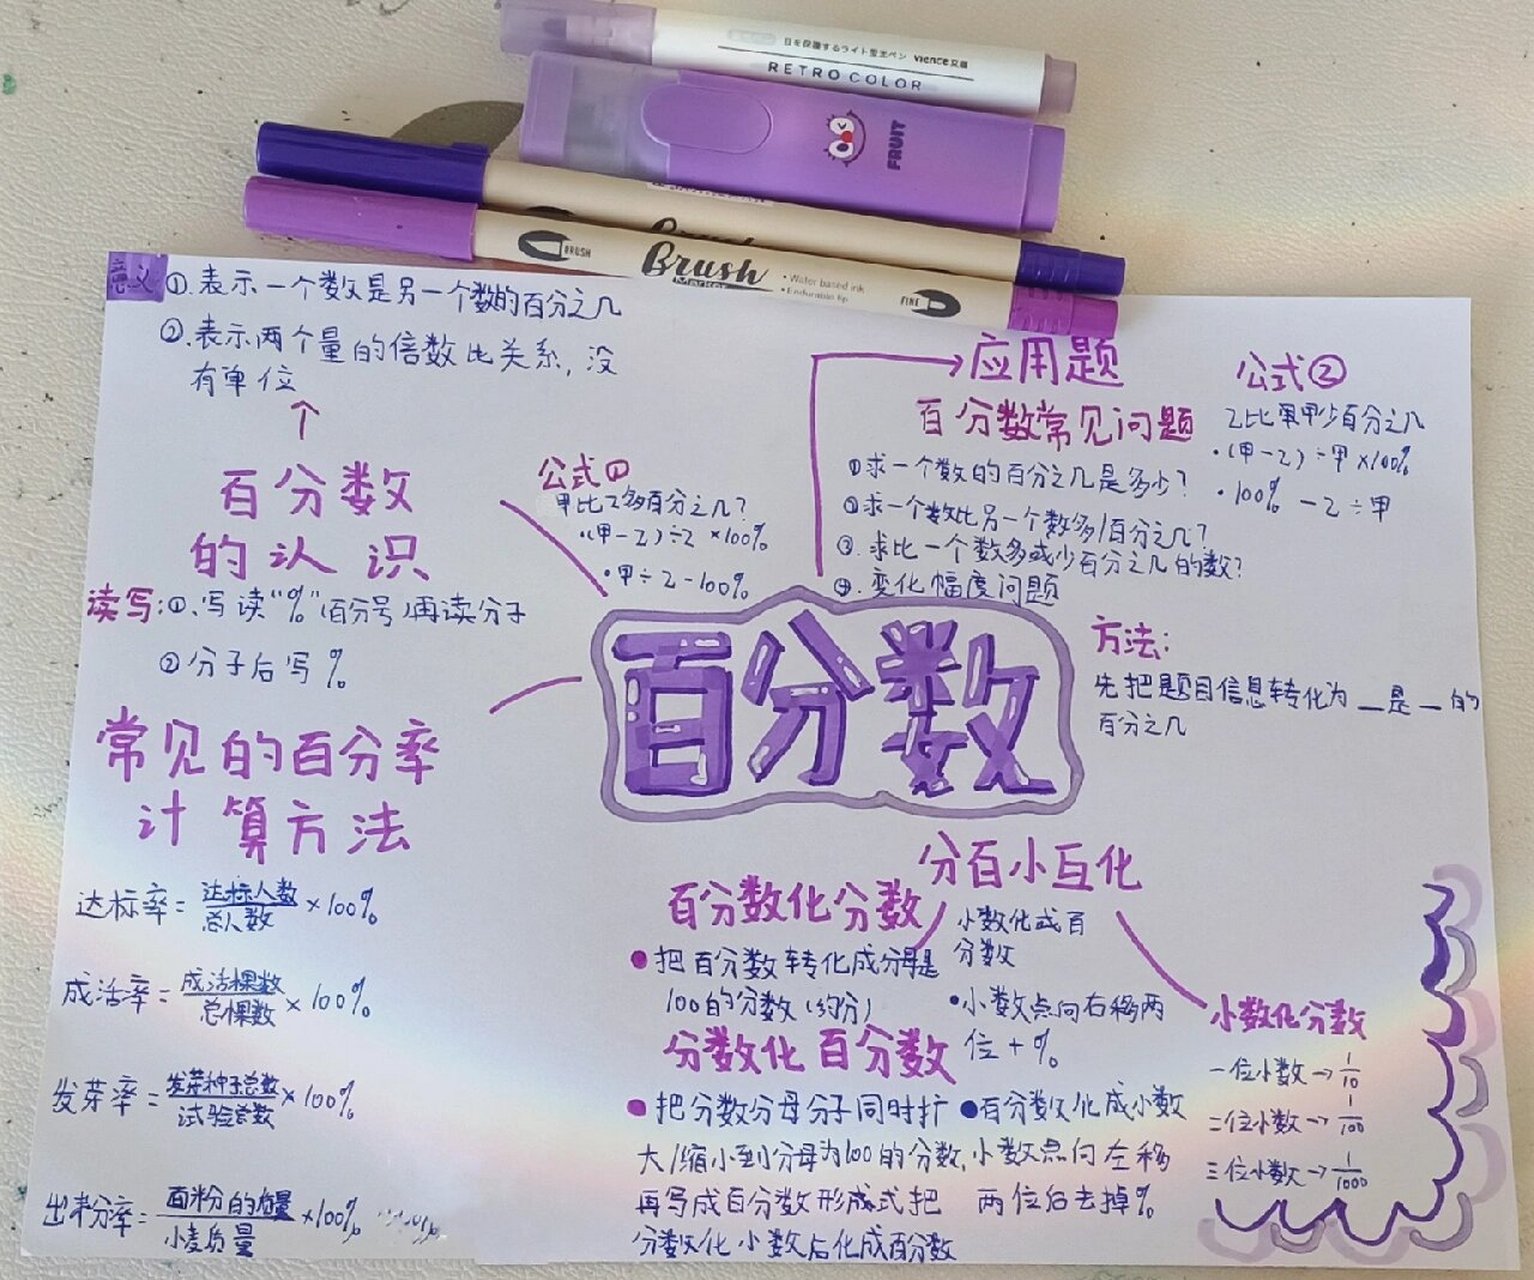 日を保護するライト蛍光ペン vience文具
RETRO COLOR
FRUIT
BRUSH
Brush
Marker
• Water based ink
• Endurable tip
FINE
意义
①.表示一个数是另一个数的百分之几
②.表示两个量的倍数比关系,没
有单位
百分数
的认识
读写:①.写读“%”(百分号)再读分子
②分子后写%
公式①
甲比乙多百分之几?
•(甲-乙)÷乙×100%
•甲÷乙-100%
应用题
百分数常见问题
①求一个数的百分之几是多少?
②求一个数比另一个数多/百分之几?
③.求比一个数多或少百分之几的数?
④.变化幅度问题
公式②
乙比甲少百分之几
•(甲-乙)÷甲×100%
•100%-乙÷甲
百分数
方法:
先把题目信息转化为__是__的
百分之几
常见的百分率
计算方法
达标率=达标人数/总人数×100%
成活率=成活棵数/总棵数×100%
发芽率=发芽种子总数/试验总数×100%
出粉率=面粉的质量/小麦质量×100%
分百小互化
百分数化分数
●把百分数转化成分母是
100的分数(约分)
分数化百分数
●把分数分母分子同时扩
大/缩小到分母为100的分数,
再写成百分数形式或把
分数化小数后化成百分数
小数化成百
分数
•小数点向右移两
位+%
●百分数化成小数
小数点向左移
两位后去掉%
小数化分数
一位小数→1/10
二位小数→1/100
三位小数→1/1000